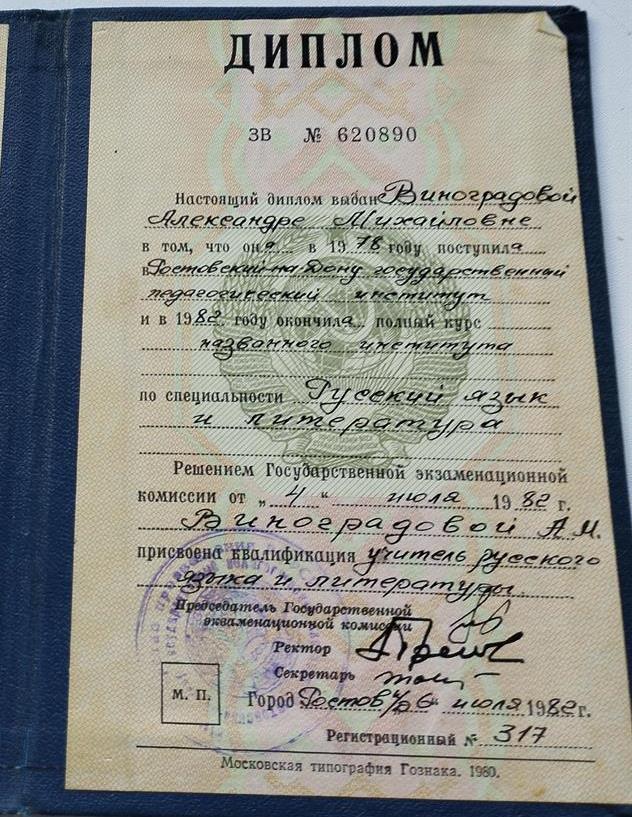 ДИПЛОМ
ЗВ № 620890
Настоящий диплом выдан Виноградовой
Александре Михайловне
в том, что она в 1978 году поступила
в Ростовский-на-Дону государственный
педагогический институт
и в 1982 году окончила полный курс
названного института
по специальности Русский язык
и литература
Решением Государственной экзаменационной
комиссии от „4“ июля 1982 г.
Виноградовой А.М.
присвоена квалификация учитель русского
языка и литературы.
Председатель Государственной
экзаменационной комиссии
Ректор
Секретарь
М. П.
Город Ростов н/Д 6 июля 1982 г.
Регистрационный № 317
Московская типография Гознака. 1980.